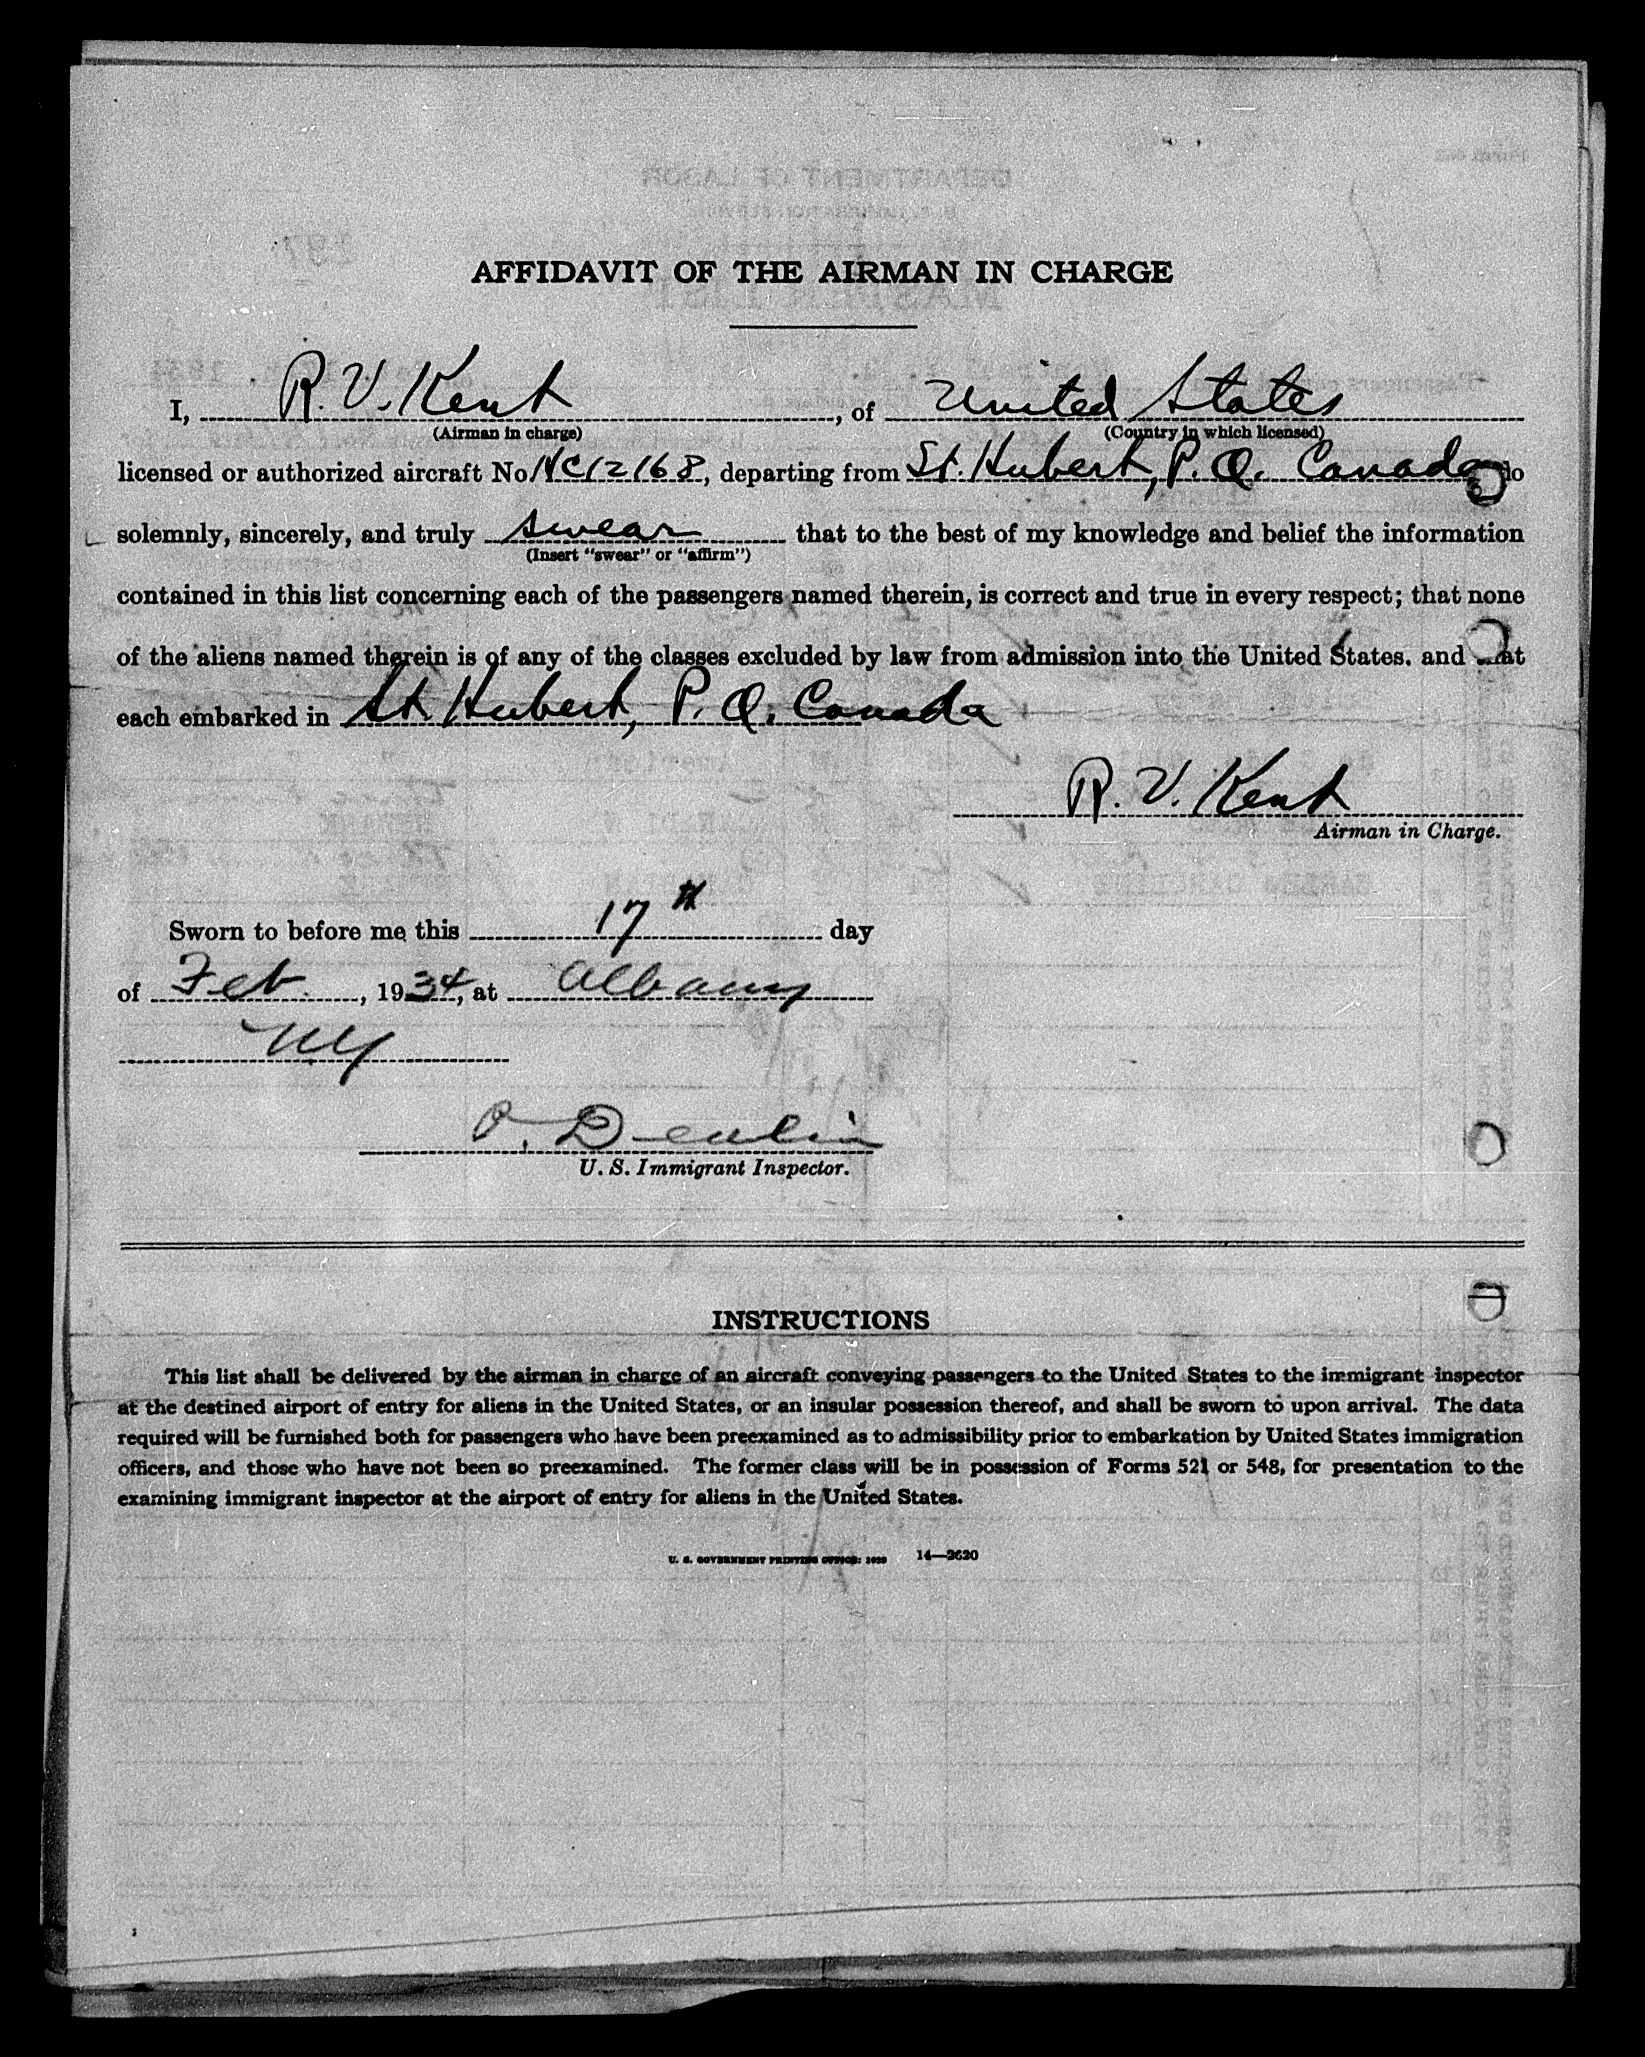 AFFIDAVIT OF THE AIRMAN IN CHARGE
I, R. V. Kent, of United States
(Airman in charge) (Country in which licensed)
licensed or authorized aircraft No. NC12168, departing from St. Hubert, P. Q. Canada do
solemnly, sincerely, and truly swear that to the best of my knowledge and belief the information
(Insert "swear" or "affirm")
contained in this list concerning each of the passengers named therein, is correct and true in every respect; that none
of the aliens named therein is of any of the classes excluded by law from admission into the United States, and that
each embarked in St. Hubert, P. Q. Canada
R. V. Kent
Airman in Charge.
Sworn to before me this 17th day
of Feb., 1934, at Albany
NY
U. S. Immigrant Inspector.
INSTRUCTIONS
This list shall be delivered by the airman in charge of an aircraft conveying passengers to the United States to the immigrant inspector
at the destined airport of entry for aliens in the United States, or an insular possession thereof, and shall be sworn to upon arrival. The data
required will be furnished both for passengers who have been preexamined as to admissibility prior to embarkation by United States immigration
officers, and those who have not been so preexamined. The former class will be in possession of Forms 521 or 548, for presentation to the
examining immigrant inspector at the airport of entry for aliens in the United States.
U. S. GOVERNMENT PRINTING OFFICE: 14—2620